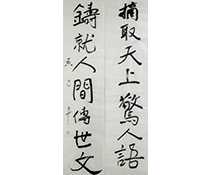 摘取天上驚人語
鑄就人間傳世文